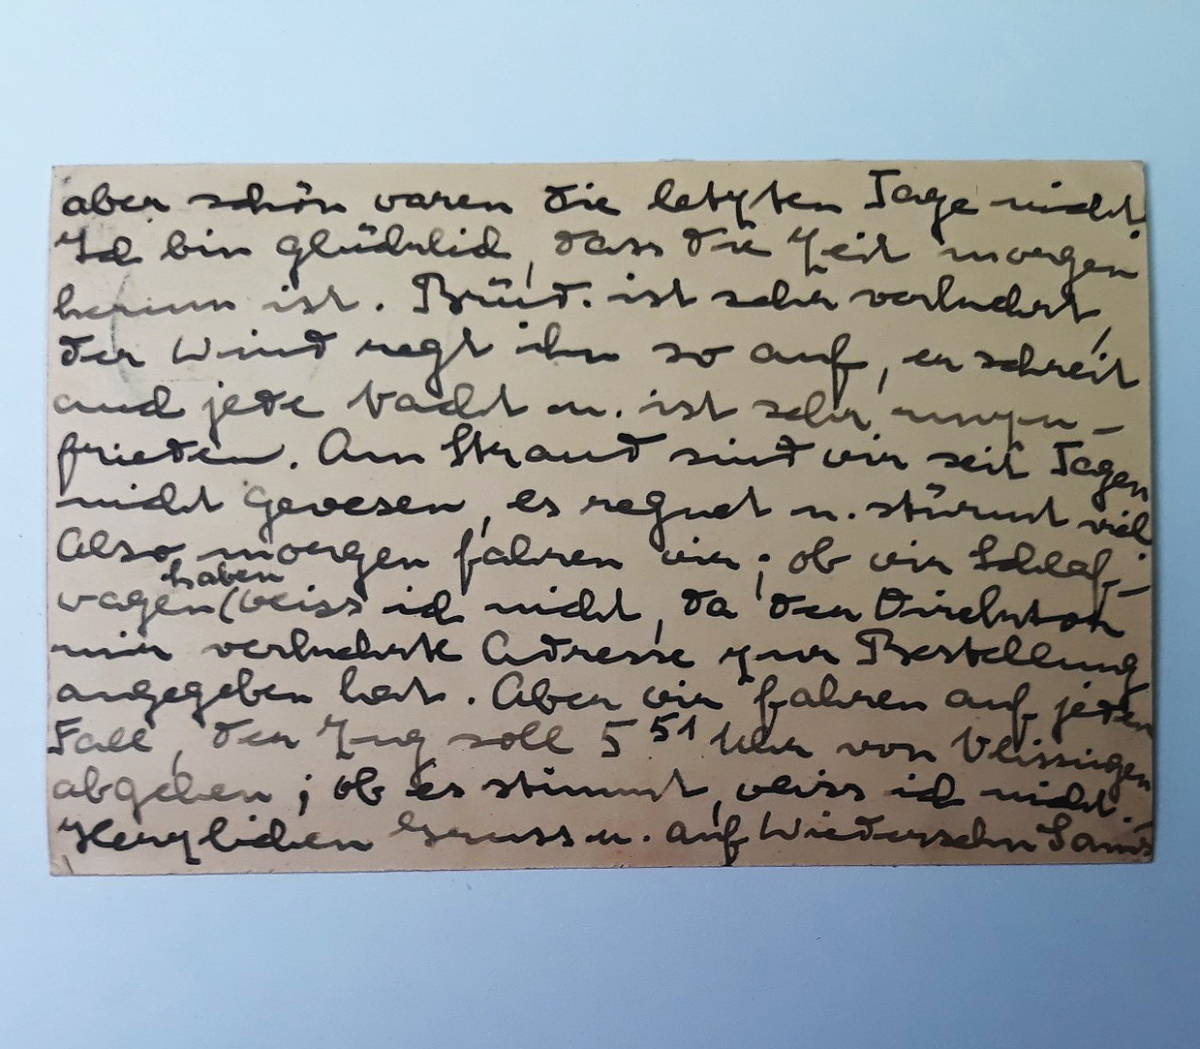 aber schön waren die letzten Tage nicht.
Ich bin glücklich, dass die Zeit morgen
herum ist. ist sehr verändert,
der Wind regt ihn so auf, er schreit
auch jede Nacht u. ist sehr unzu-
frieden. Am Strand sind wir seit Tagen
nicht gewesen, es regnet u. stürmt viel
Also morgen fahren wir; ob wir Schlaf-
wagen (haben weiss ich nicht, da der Direktor
mir verkehrte Adresse zur Bestellung
angegeben hat. Aber wir fahren auf jeden
Fall, der Zug soll 5 51 Uhr von Vlissingen
abgehen; ob es stimmt, weiss ich nicht.
Herzlichen Gruss u. auf Wiedersehn